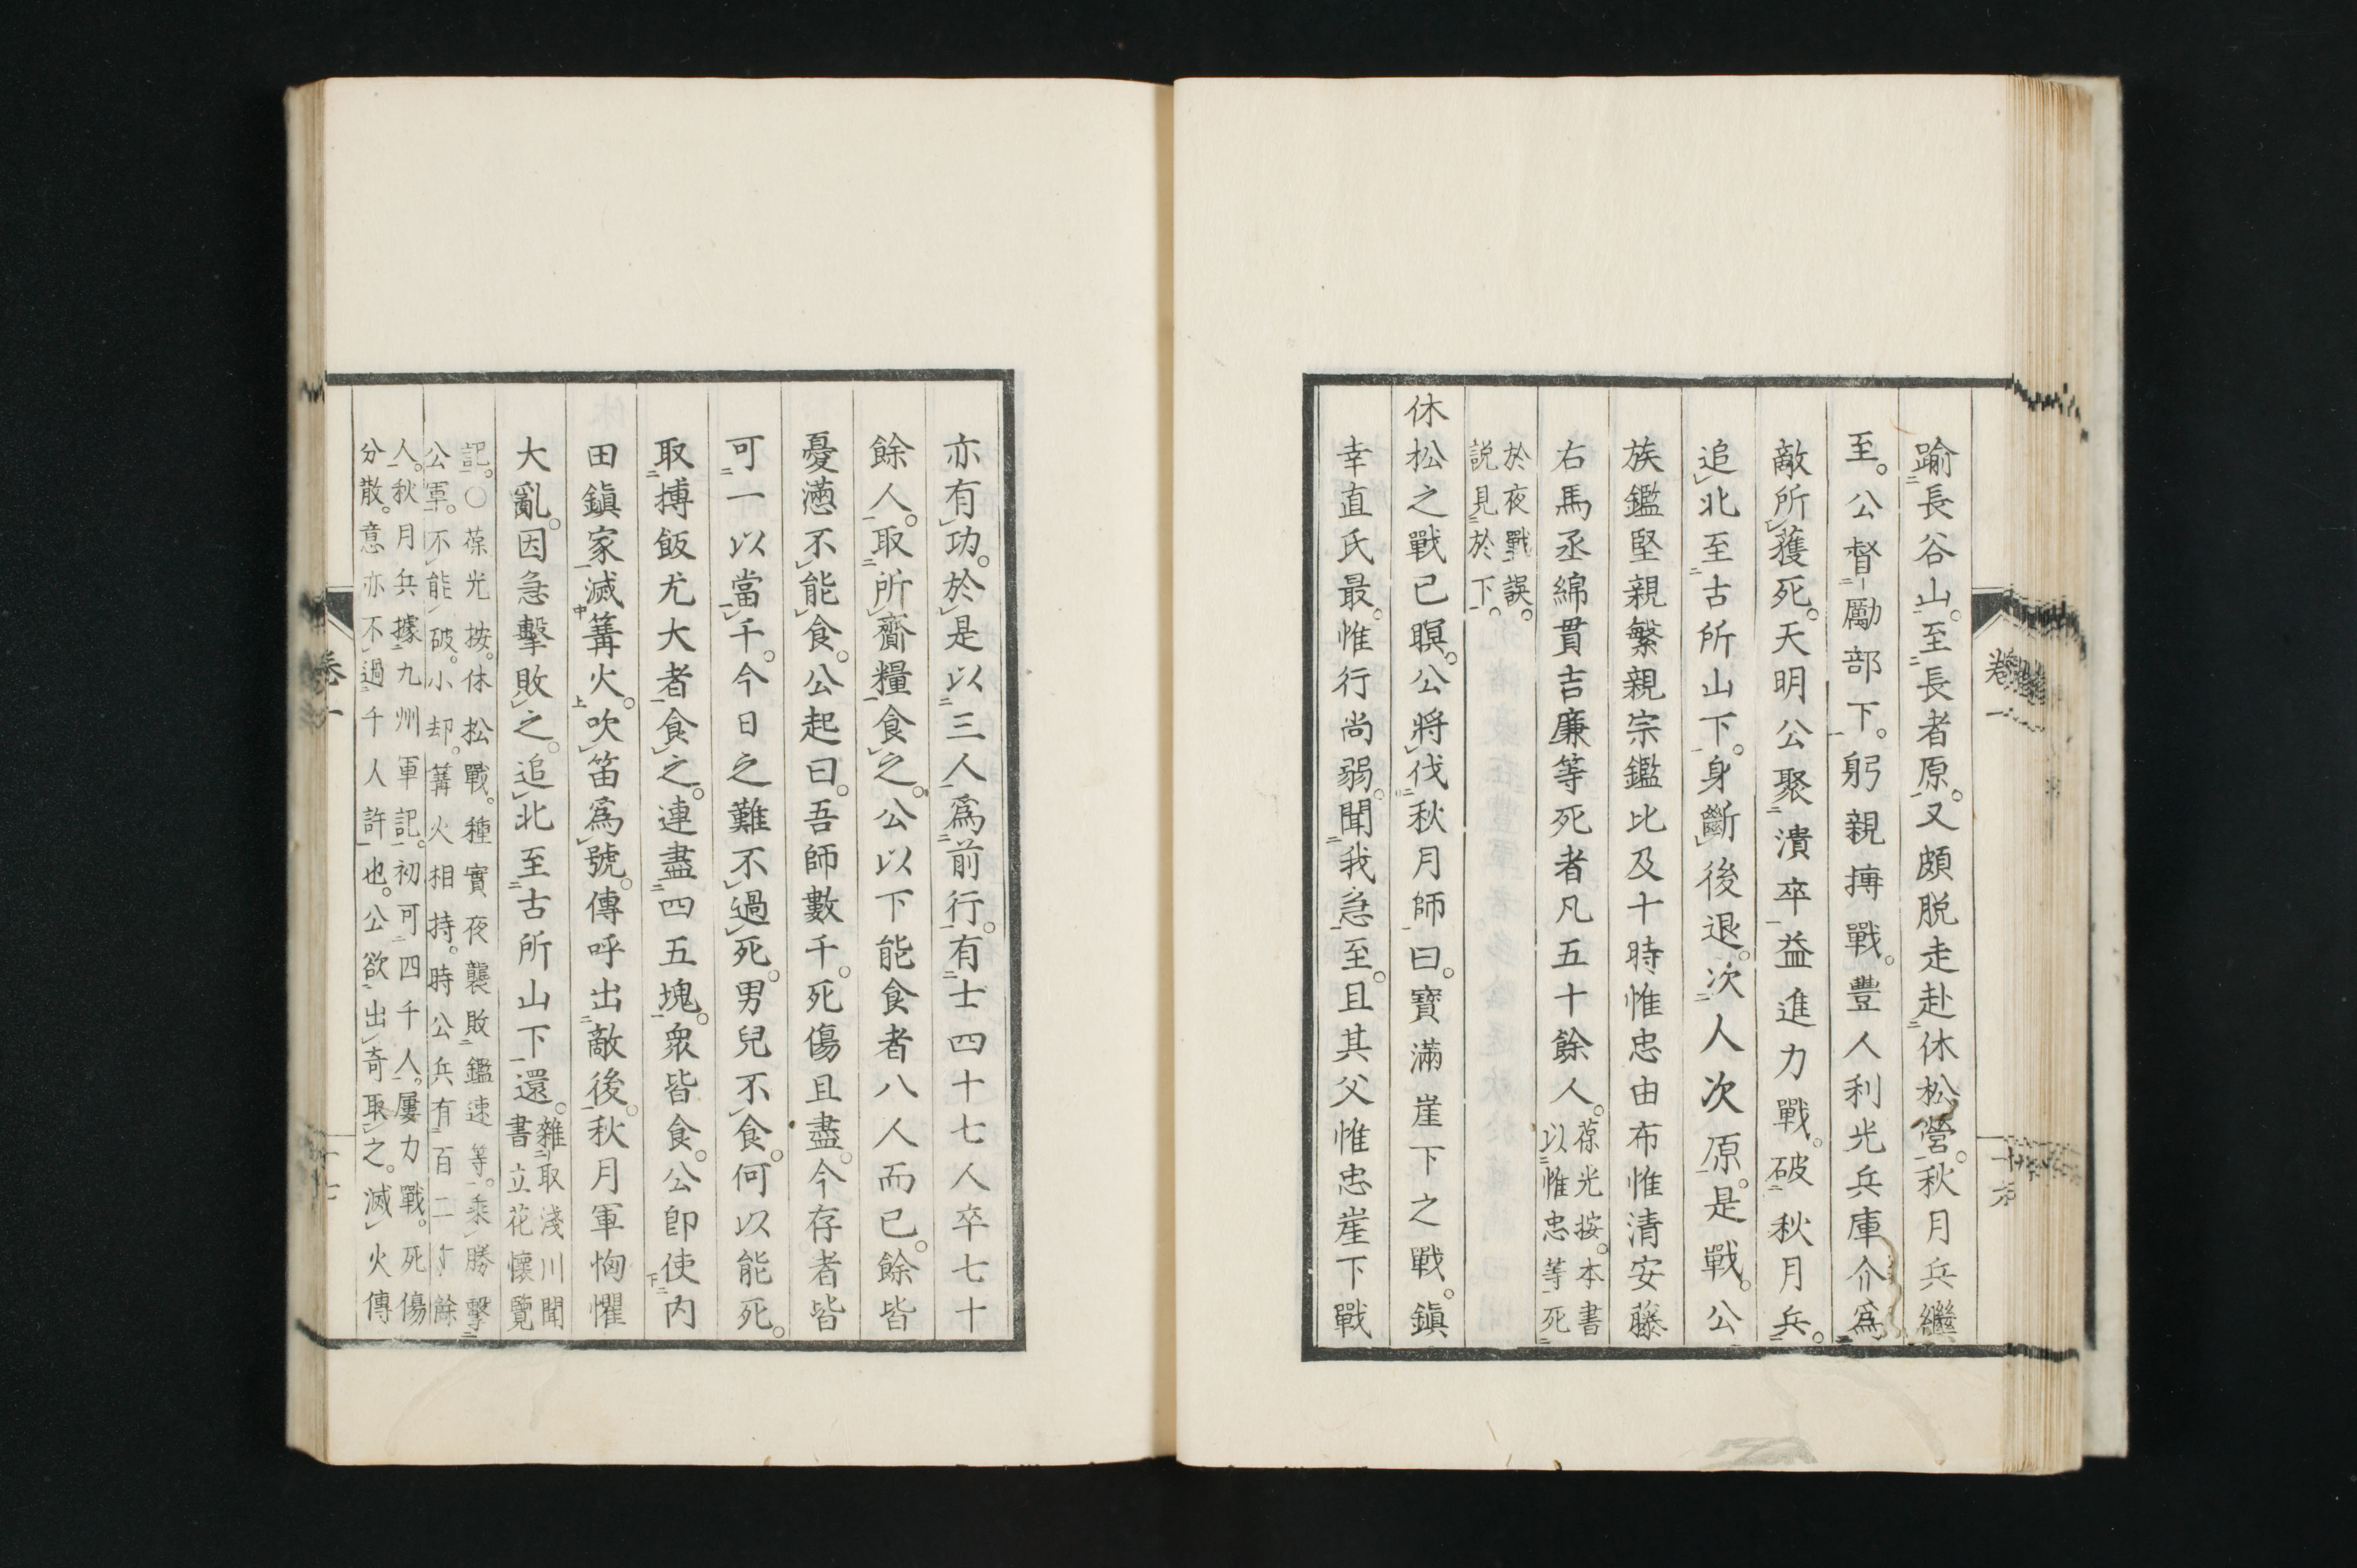 卷一
十六
踰長谷山。至長者原。又頗脱走赴休松營。秋月兵繼
至。公督勵部下。躬親摶戰。豐人利光兵庫介爲
敵所獲死。天明公聚潰卒益進力戰。破秋月兵。
追北至古所山下。身斷後退。次人次原。是戰。公
族鑑堅親繁親宗鑑比及十時惟忠由布惟清安藤
右馬丞綿貫吉廉等死者凡五十餘人。
葆光按。本書
以惟忠等死
於夜戰誤。
説見於下。
休松之戰已暝。公將伐秋月師曰。寶滿崖下之戰。鎭
幸直氏最。惟行尚弱。聞我急至。且其父惟忠崖下戰
亦有功。於是以三人爲前行。有士四十七人卒七十
餘人。取所齎糧食之。公以下能食者八人而已。餘皆
憂懣不能食。公起曰。吾師數千。死傷且盡。今存者皆
可一以當千。今日之難不過死。男兒不食。何以能死。
取摶飯尤大者食之。連盡四五塊。衆皆食。公卽使内
田鎭家滅篝火。吹笛爲號。傳呼出敵後。秋月軍恟懼
大亂。因急擊敗之。追北至古所山下還。
雜取淺川聞
書立花懷覽
記。○葆光按。休松戰。種實夜襲敗鑑速等。乘勝擊
公軍。不能破。小却。篝火相持。時公兵有百二十餘
人。秋月兵據九州軍記。初可四千人。屢力戰。死傷
分散。意亦不過千人許也。公欲出奇取之。滅火傳
卷一
十七